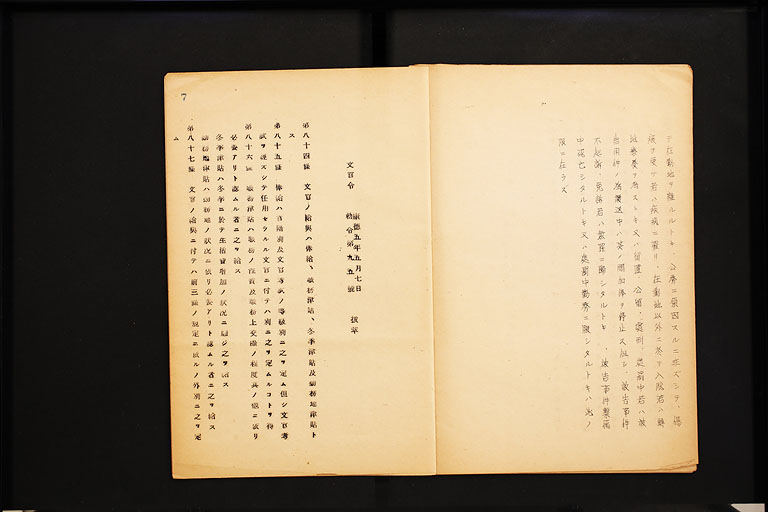 テ在勤地ヲ離ルルトキ、公務ニ原因スルニ在ズシテ、傷
痍ヲ受ケ若ハ疾病ニ罹リ、在勤地以外ニ於テ入院若ハ轉
地療養ヲ為ストキ又ハ留置、處刑、處罰中若ハ被
ノ為護送中ハ其ノ間加俸ヲ停止ス但シ、被告事件
不起訴、免訴若ハ無罪ニ歸シタルトキ、被告事件繫属
中死亡シタルトキ又ハ處罰中勤務ニ服シタルトキハ此ノ
限ニ在ラズ
7
文官令
康德五年五月七日
勅令第九五號 拔萃
第八十四條 文官ノ給與ハ俸給、職務津貼、冬季津貼及勤務地津貼ト
ス
第八十五條 俸給ハ官等別及文官考試ノ等級別ニ之ヲ定ム但シ文官考
試ヲ經ズシテ任用セラルル文官ニ付テハ別ニ之ヲ定ムルコトヲ得
第八十六條 職務津貼ハ職務ノ性質及職務上交際ノ程度其ノ他ニ依リ
必要アリト認ムル者ニ之ヲ給ス
冬季津貼ハ冬季ニ於テ生活費增加ノ狀況ニ應ジ之ヲ給ス
勤務地津貼ハ勤務地ノ狀況ニ依リ必要アリト認ムル者ニ之ヲ給ス
第八十七條 文官ノ給與ニ付テハ前三條ノ規定ニ依ルノ外別ニ之ヲ定
ム